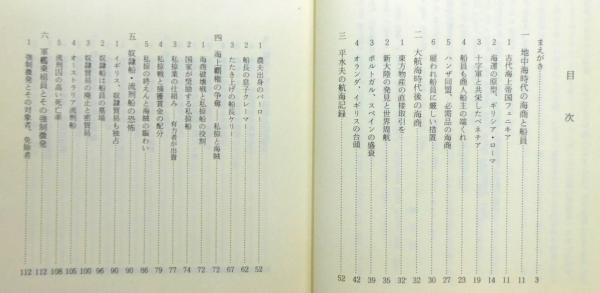 目次
まえがき 3
一 地中海時代の海商と船員 11
1 古代海上帝国フェニキア 11
2 海運の原型、ギリシア・ローマ 14
3 十字軍と共栄したベネチア 19
4 船員も商人船主の端くれ 23
5 ハンザ同盟、必需品の海商 27
6 雇われ船員に厳しい措置 30
二 大航海時代後の海商 32
1 東方物産の直接取引を 32
2 新大陸の発見と世界周航 35
3 ポルトガル、スペインの盛衰 39
4 オランダ、イギリスの台頭 42
三 平水夫の航海記録 52
1 農夫出身のバーロー 52
2 船長の息子クレーマー 62
3 たたき上げの船長ケリー 67
四 海上覇権の争奪——私掠と海賊 72
1 海商破壊戦と私掠船の役割 72
2 国家が奨励する私掠船 74
3 私掠業の仕組み 有力者が出資 77
4 私掠戦と捕獲賞金の配分 79
5 私掠の終えんと海賊の賑わい 86
五 奴隷船・流刑船の恐怖 90
1 イギリス、奴隷貿易も独占 90
2 奴隷船は船員の墓場 96
3 奴隷貿易の廃止と密貿易 100
4 オーストラリア流刑船 105
5 流刑囚の高い死亡率 108
六 軍艦乗組員とその強制徴発 112
1 強制徴発とその対象者、免除者 112